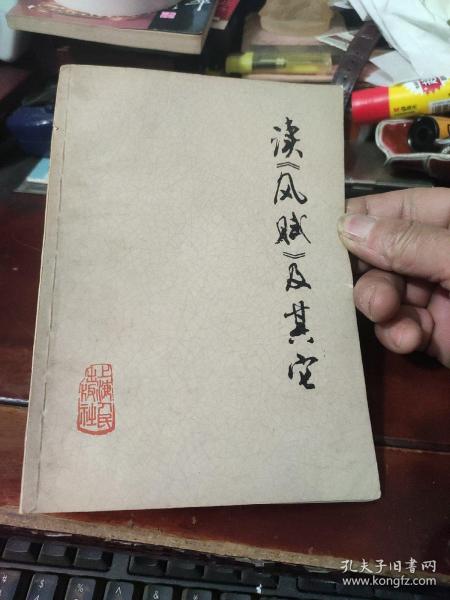 读《风赋》及其它
上海人民
出版社
孔夫子旧书网
www.kongfz.com